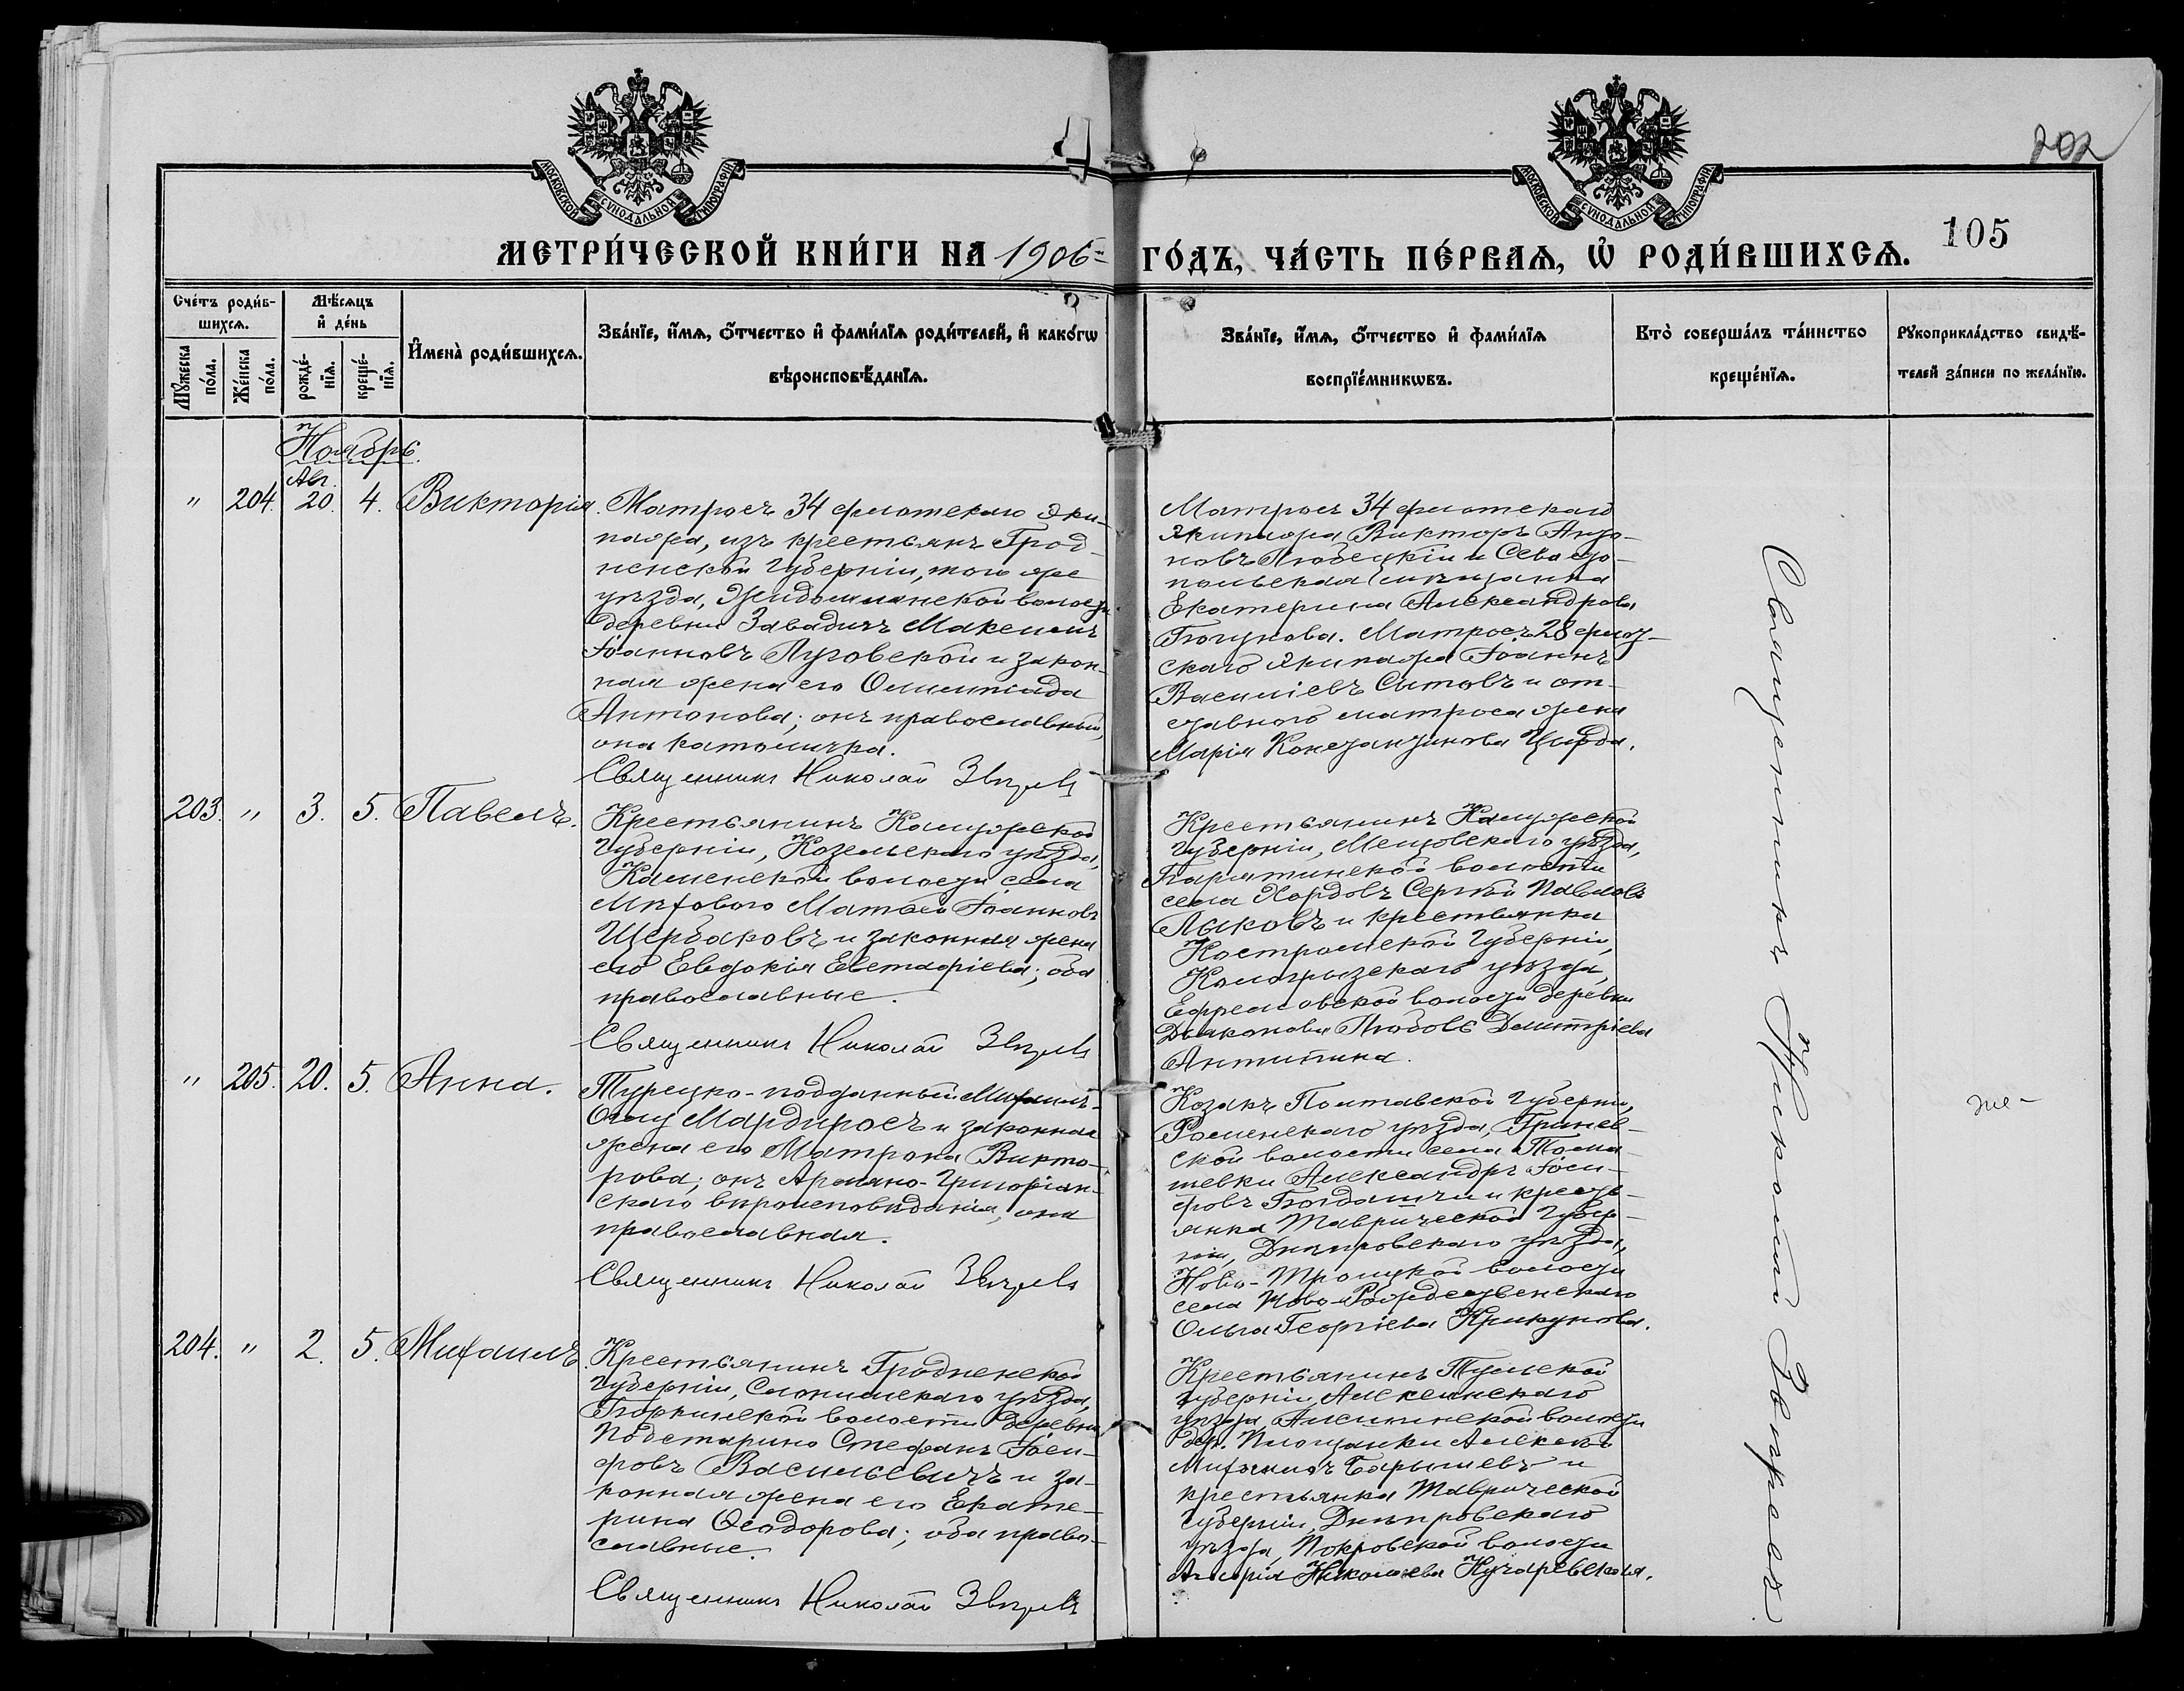 202
105
МОСКОВСКОЙ СѴНОДАЛЬНОЙ ТИПОГРАФІИ
МОСКОВСКОЙ СѴНОДАЛЬНОЙ ТИПОГРАФІИ
МЕТРИ́ЧЕСКОЙ КНИ́ГИ НА 1906 ГО́ДЪ, ЧА́СТЬ ПЕ́РВАѦ, Ѡ РОДИ́ВШИХСѦ.
Сче́тъ роди́в-
шихсѧ.
Мꙋжеска по́ла.
Же́нска по́ла.
Мѣ́сѧцъ
и҆ де́нь
рожде́-
нїѧ.
креще́-
нїѧ.
И҆мена̀ роди́вшихсѧ.
Зва́нїе, и҆́мѧ, ѻ҆́тчество и҆ фами́лїѧ роди́телей, и҆ како́гѡ
вѣроисповѣ́данїѧ.
Зва́нїе, и҆́мѧ, ѻ҆́тчество и҆ фами́лїѧ
воспрїе́мникѡвъ.
Кто̀ соверша́лъ та́инство
креще́нїѧ.
Рꙋкоприкла́дство свидѣ́-
телей за́писи по жела́нїю.
Ноябрь.
Авг.
" 204. 20. 4. Викторія.
Матросъ 34 флотскаго эки-
пажа, изъ крестьянъ Грод-
ненской губерніи, того же
уѣзда, Жидомлянской волости
деревни Завадичъ Максимъ
Іоанновъ Луговской и закон-
ная жена его Олимпіада
Антонова; онъ православный,
она католичка.
Священникъ Николай Звѣревъ
Матросъ 34 флотскаго
экипажа Викторъ Анто-
новъ Любецкій и Севасто-
польская мѣщанка
Екатерина Александрова
Матросъ 28 флот-
скаго экипажа Іоаннъ
Василіевъ Сытовъ и от-
ставного матроса жена
Марія Константинова Цырда.
203. " 3. 5. Павелъ.
Крестьянинъ Калужской
губерніи, Козельскаго уѣзда,
Каменской волости, села
Мѣхового Матѳей Іоанновъ
Щербаковъ и законная жена
его Евдокія Евстафіева; оба
православные.
Священникъ Николай Звѣревъ
Крестьянинъ Калужской
губерніи, Мещовскаго уѣзда,
Барятинской волости
села Хордовъ Сергѣй Павловъ
Лыковъ и крестьянка
Костромской губерніи,
Кологривскаго уѣзда,
Ефремовской волости деревни
Дьяконова Любовь Димитріева
Антипина.
" 205. 20. 5. Анна.
Турецко-подданный Михаилъ-
Оглу Мардиросъ и законная
жена его Матрона Викто-
рова; онъ Армяно-Григоріан-
скаго вѣроисповѣданія, она
православная.
Священникъ Николай Звѣревъ
Козакъ Полтавской губерніи,
Роменскаго уѣзда, Гринев-
ской волости села Тома-
шевки Александръ Іоси-
фовъ и кресть-
янка Таврической губер-
ніи, Днѣпровскаго уѣзда,
Ново-Троицкой волости
села Ново-Рождественскаго
Ольга Георгіева Крикунова.
204. " 2. 5. Михаилъ
Крестьянинъ Гродненской
губерніи, Слонимскаго уѣзда,
волости деревни
Подстарино Стефанъ Іоси-
фовъ Васильевичъ и за-
конная жена его Екате-
рина Ѳеодорова; оба право-
славные.
Священникъ Николай Звѣревъ
Крестьянинъ Тульской
губерніи, Алексинскаго
уѣзда, волости
дер. Площанки Алексѣй
Михаиловъ Барышевъ и
крестьянка Таврической
губерніи, Днѣпровскаго
уѣзда, Покровской волости
Николаева
Священникъ Николай Звѣревъ.